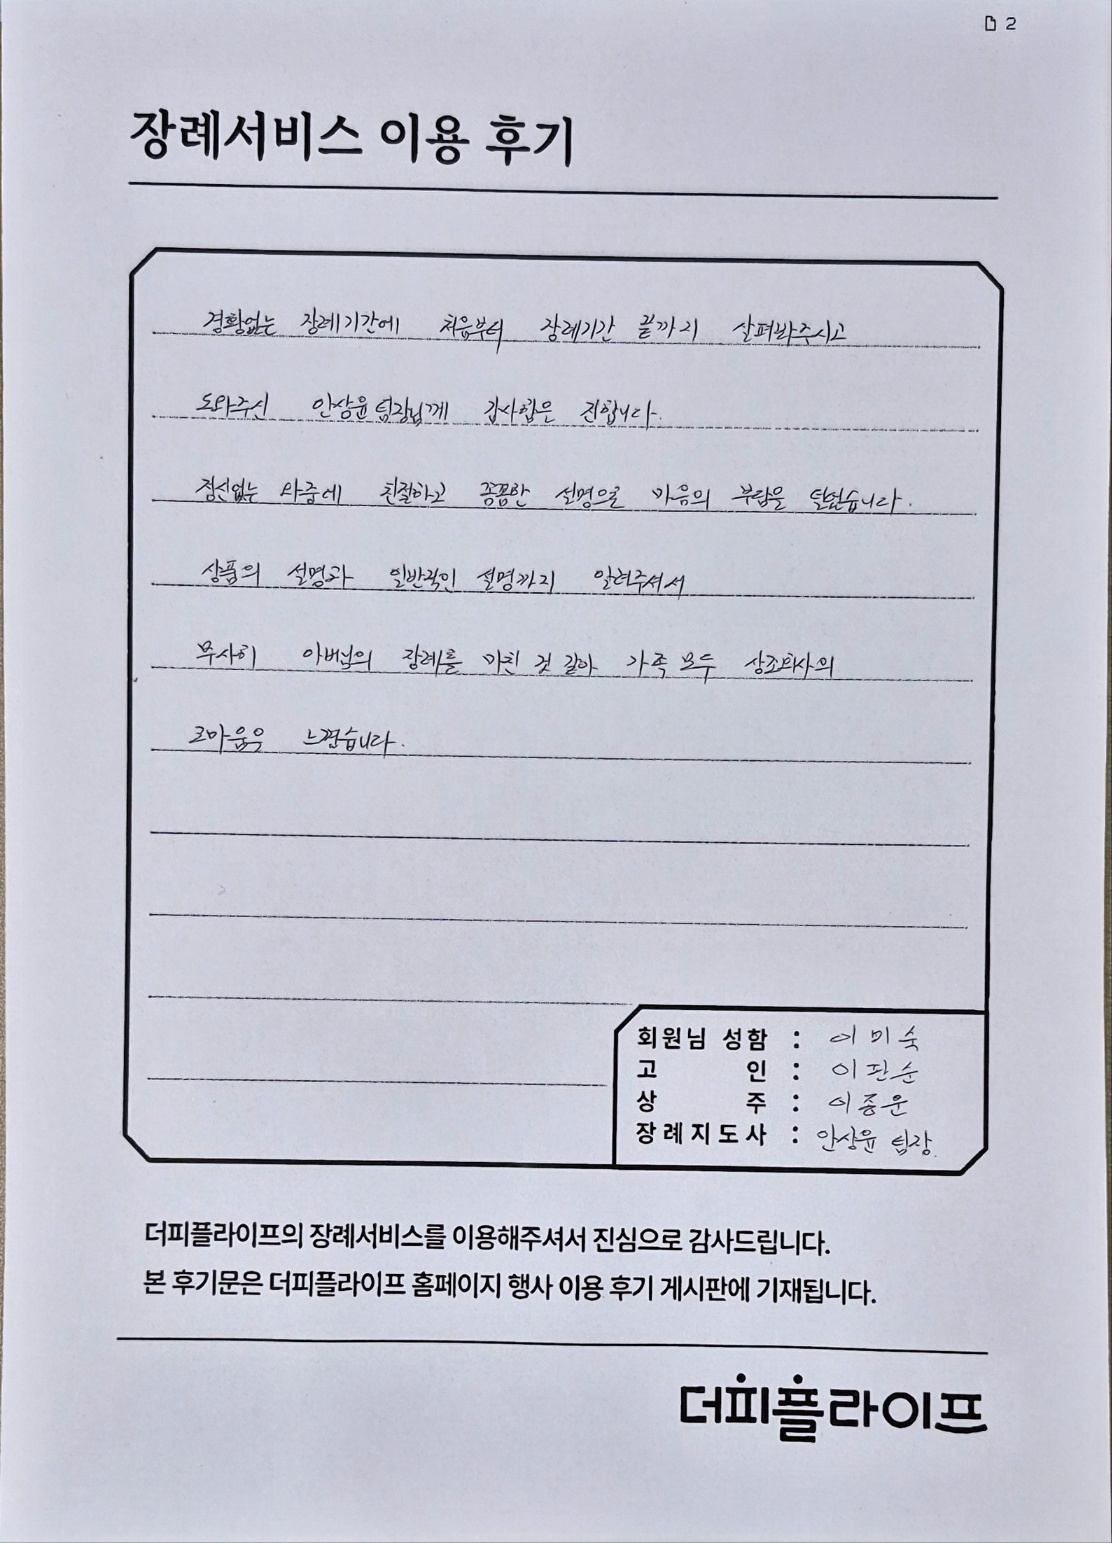 2
장례서비스 이용 후기
경황없는 장례기간에 처음부터 장례기간 끝까지 살펴봐주시고
도와주신 안상윤 팀장님께 감사함은 전합니다.
정신없는 와중에 친절하고 꼼꼼한 설명으로 마음의 부담을 덜었습니다.
상품의 설명과 일반적인 설명까지 알려주셔서
무사히 아버님의 장례를 마친 것 같아 가족 모두 상조회사의
고마움을 느꼈습니다.
회원님 성함 : 이미숙
고 인 : 이판순
상 주 : 이종운
장례지도사 : 안상윤 팀장.
더피플라이프의 장례서비스를 이용해주셔서 진심으로 감사드립니다.
본 후기문은 더피플라이프 홈페이지 행사 이용 후기 게시판에 기재됩니다.
더피플라이프